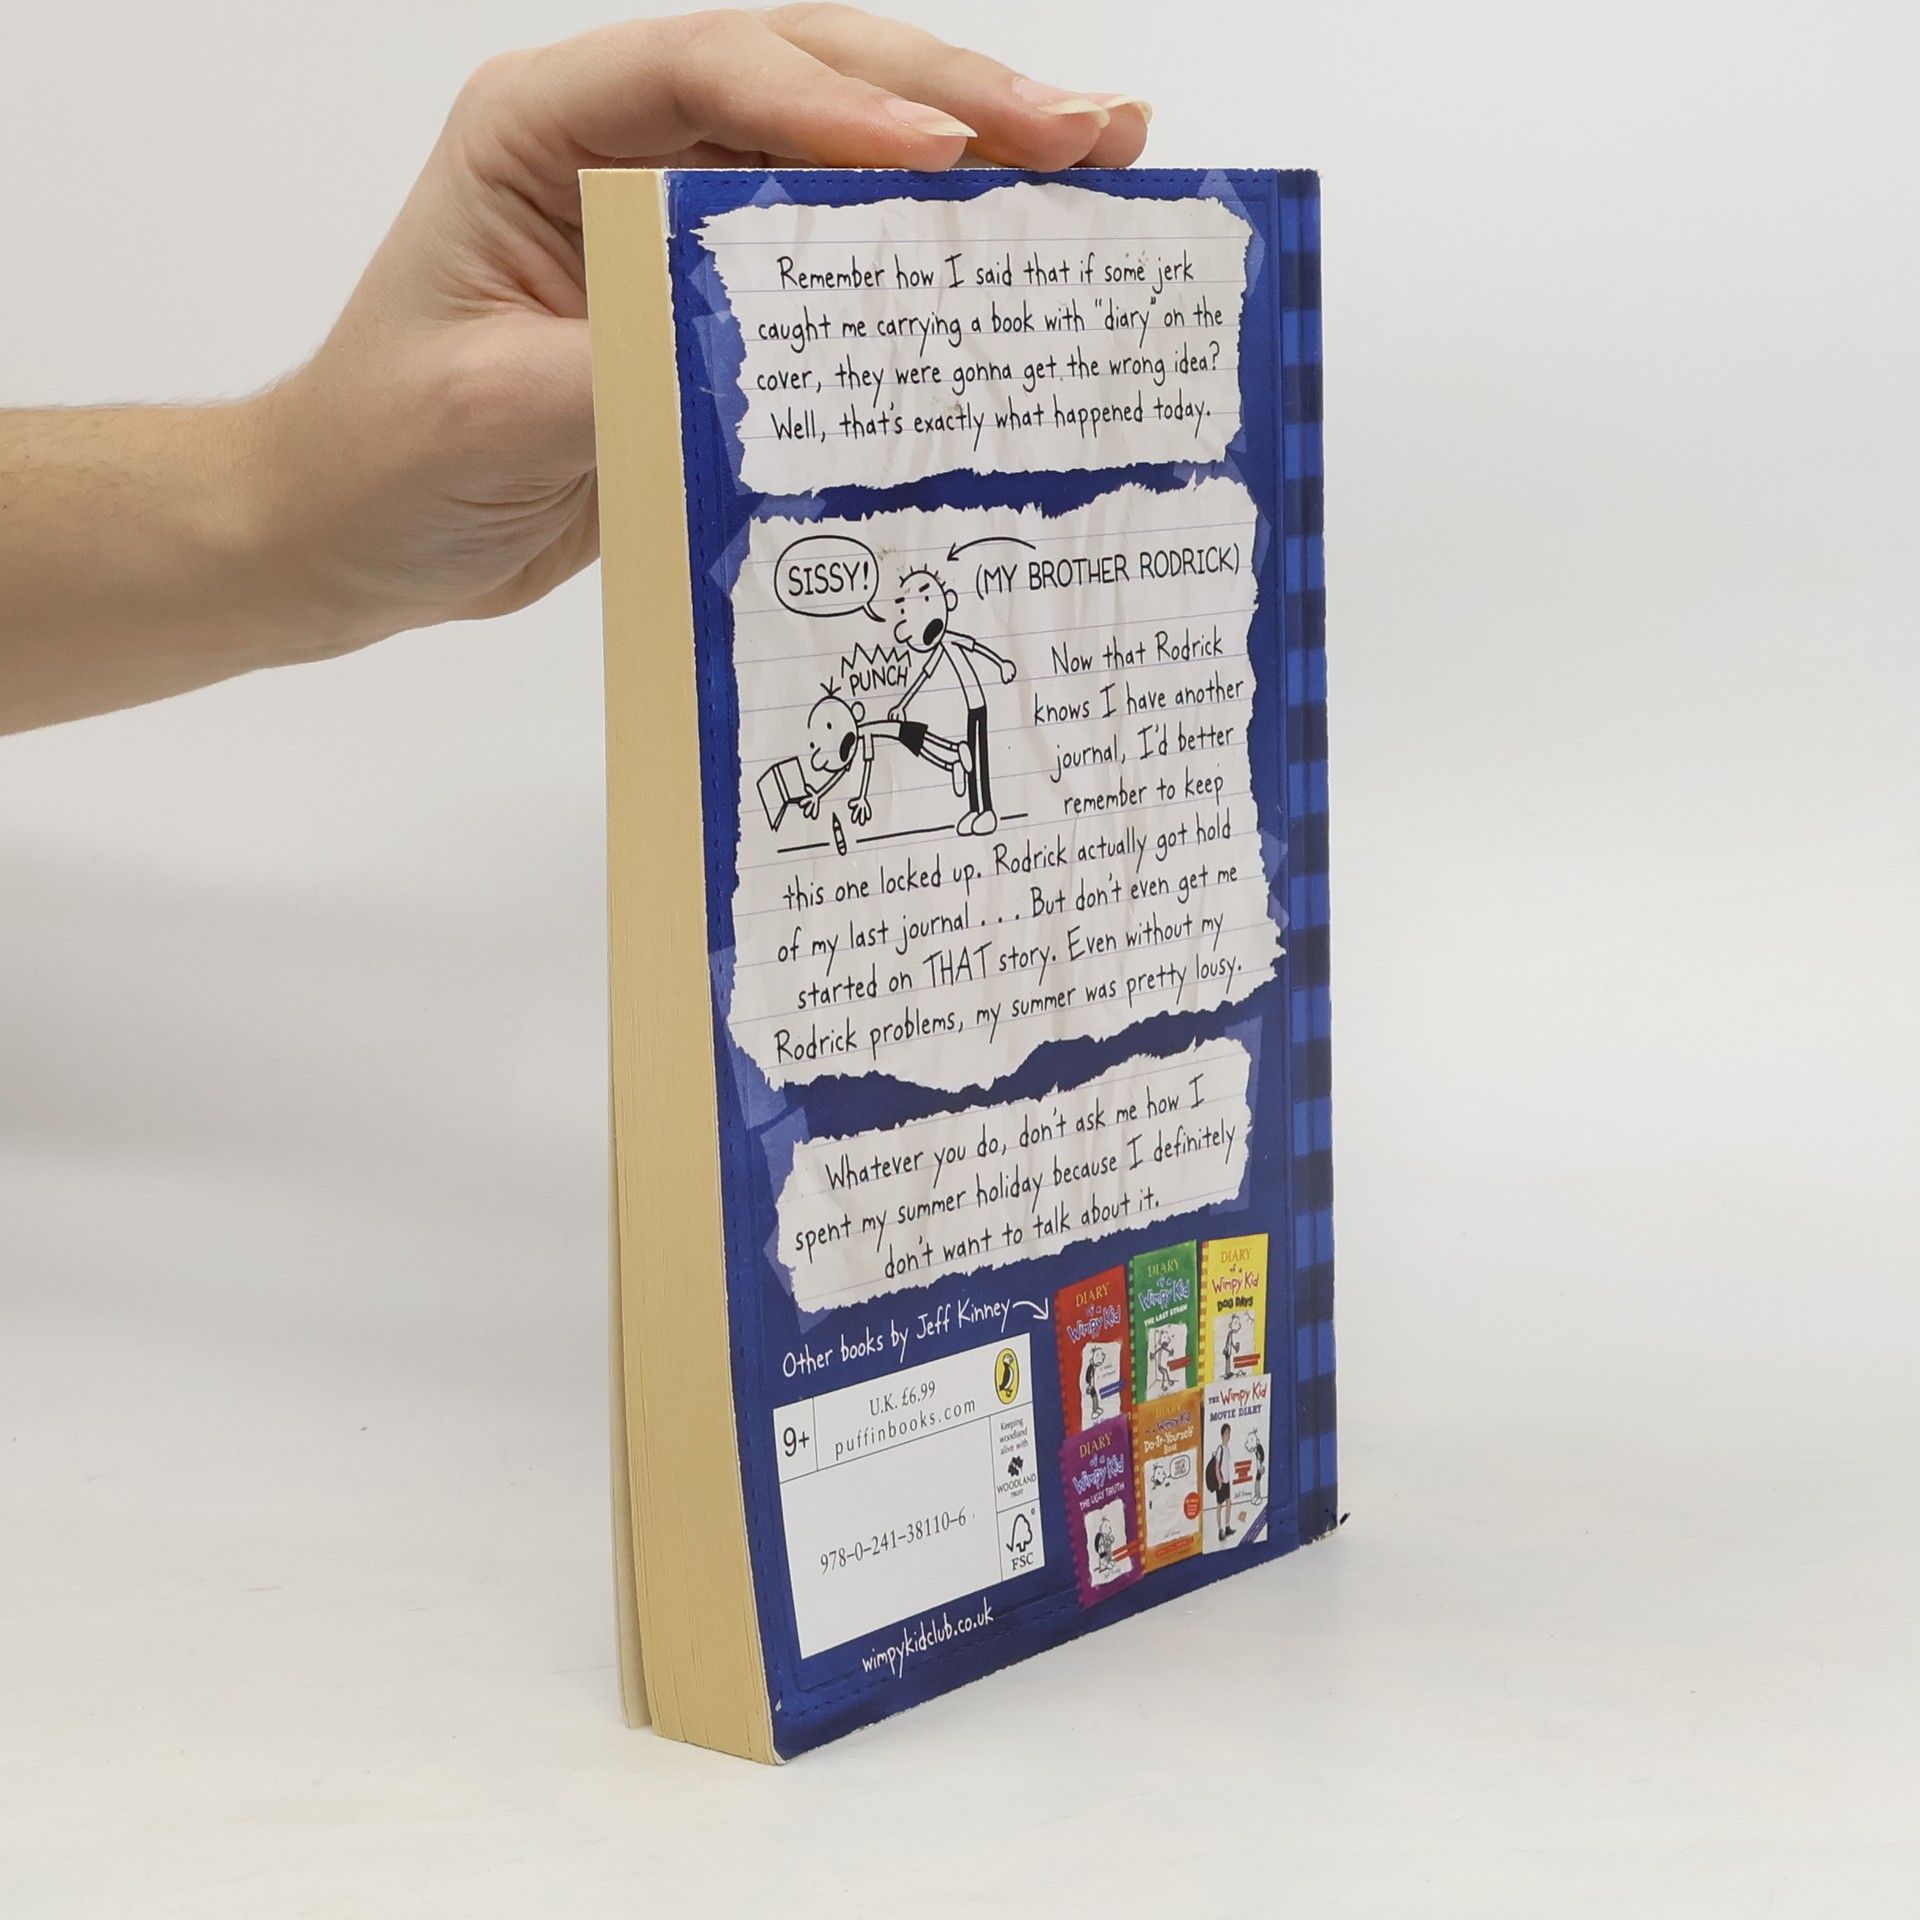 Remember how I said that if some jerk
caught me carrying a book with "diary" on the
cover, they were gonna get the wrong idea?
Well, that's exactly what happened today.
SISSY!
(MY BROTHER RODRICK)
PUNCH
Now that Rodrick
knows I have another
journal, I'd better
remember to keep
this one locked up. Rodrick actually got hold
of my last journal . . . But don't even get me
started on THAT story. Even without my
Rodrick problems, my summer was pretty lousy.
Whatever you do, don't ask me how I
spent my summer holiday because I definitely
don't want to talk about it.
Other books by Jeff Kinney
DIARY
of a
Wimpy Kid
DIARY
of a
Wimpy Kid
THE LAST STRAW
DIARY
of a
Wimpy Kid
DOG DAYS
DIARY
of a
Wimpy Kid
THE UGLY TRUTH
DIARY
of a Wimpy Kid
Do-It-Yourself
Book
THE Wimpy Kid
MOVIE DIARY
9+
U.K. £6.99
puffinbooks.com
Keeping
woodland
alive with
WOODLAND
TRUST
978-0-241-38110-6
FSC
wimpykidclub.co.uk